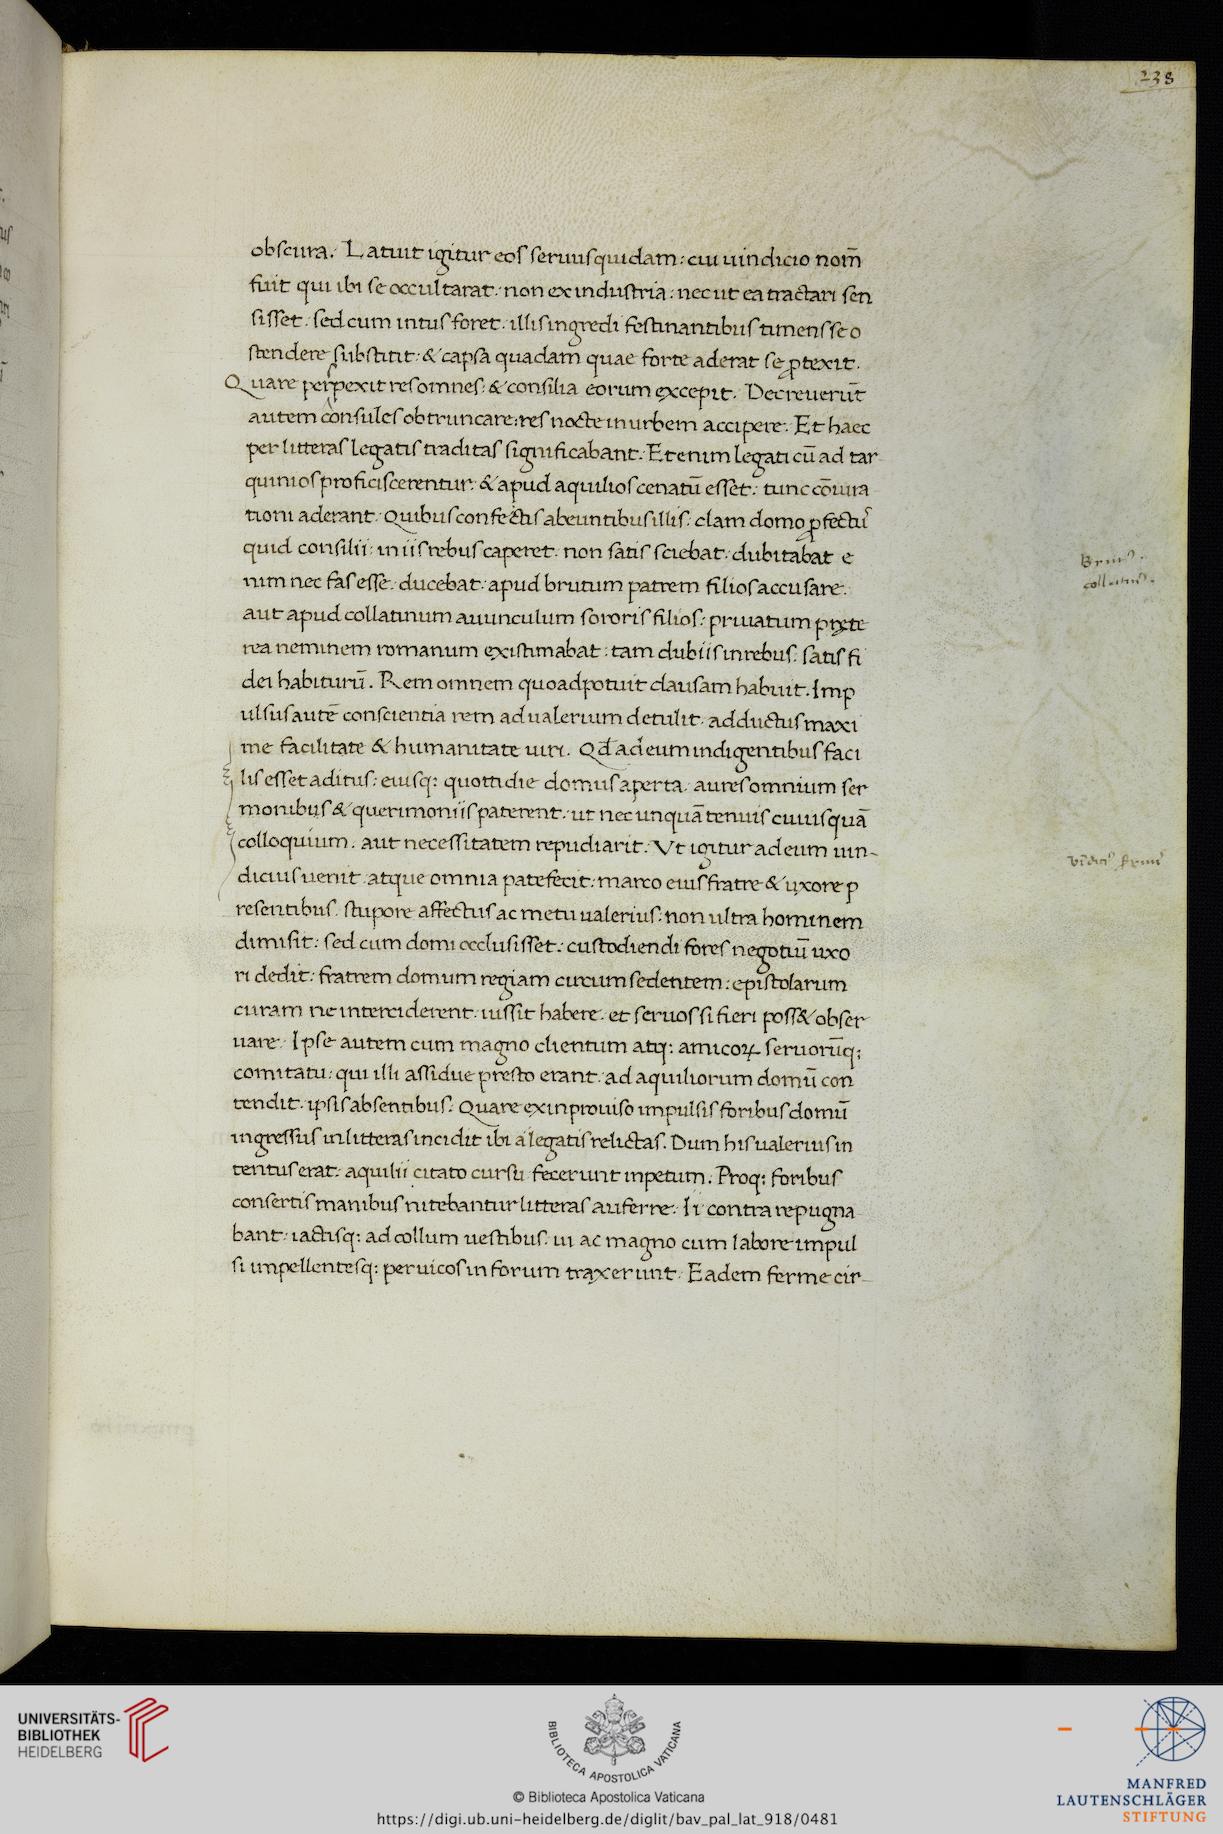 238
obscura. Latuit igitur eos seruus quidam: cui uindicio nom̄
fuit qui ibi se occultarat. non ex industria: nec ut ea tractari sen
sisset. sed cum intus foret. illis ingredi festinantibus timens se o
stendere substitit: & capsa quadam quae forte aderat se ꝓtexit.
Quare perspexit res omnes. & consilia eorum excepit. Decreuerūt
autem consules obtruncare: res nocte in urbem accipere. Et haec
per litteras legatis traditas significabant. Etenim legati cū ad tar
quinios proficiscerentur. & apud aquilios cenatū esset: tunc cōiura
tioni aderant. Quibus confectis abeuntibus illis. clam domo ꝓfectꝰ
quid consilii: in iis rebus caperet. non satis sciebat. dubitabat e
nim nec fas esse. ducebat. apud brutum patrem filios accusare.
aut apud collatinum auunculum sororis filios: priuatum pręte
rea neminem romanum existimabat. tam dubiis in rebus. satis fi
dei habiturū. Rem omnem quoad potuit clausam habuit. Imp
ulsus autē conscientia rem ad ualerium detulit. adductus maxi
me facilitate & humanitate uiri. Qd̄ ad eum indigentibus faci
lis esset aditus: eiusq: quottidie domus aperta. aures omnium ser
monibus & querimoniis paterent. ut nec unquā tenuis cuiusquā
colloquium. aut necessitatem repudiarit. Vt igitur ad eum uin-
dicius uenit. atque omnia patefecit: marco eius fratre & uxore p
resentibus. stupore affectus ac metu ualerius: non ultra hominem
dimisit: sed cum domi occlusisset: custodiendi fores negotiū uxo
ri dedit: fratrem domum regiam circumsedentem: epistolarum
curam ne interciderent. iussit habere. et seruos si fieri poss& obser
uare. Ipse autem cum magno clientum atq: amicoꝝ seruorūq;
comitatu: qui illi assidue presto erant. ad aquiliorum domū con
tendit. ipsis absentibus. Quare ex inprouiso impulsis foribus domū
ingressus in litteras incidit ibi a legatis relictas. Dum his ualerius in
tentus erat: aquilii citato cursu fecerunt inpetum. Proq: foribus
consertis manibus nitebantur litteras auferre. Ii contra repugna
bant. iactisq: ad collum uestibus. ui ac magno cum labore impul
si impellentesq: per uicos in forum traxerunt. Eadem ferme cir-
UNIVERSITÄTS-
BIBLIOTHEK
HEIDELBERG
BIBLIOTECA APOSTOLICA VATICANA
© Biblioteca Apostolica Vaticana
https://digi.ub.uni-heidelberg.de/diglit/bav_pal_lat_918/0481
MANFRED
LAUTENSCHLÄGER
STIFTUNG